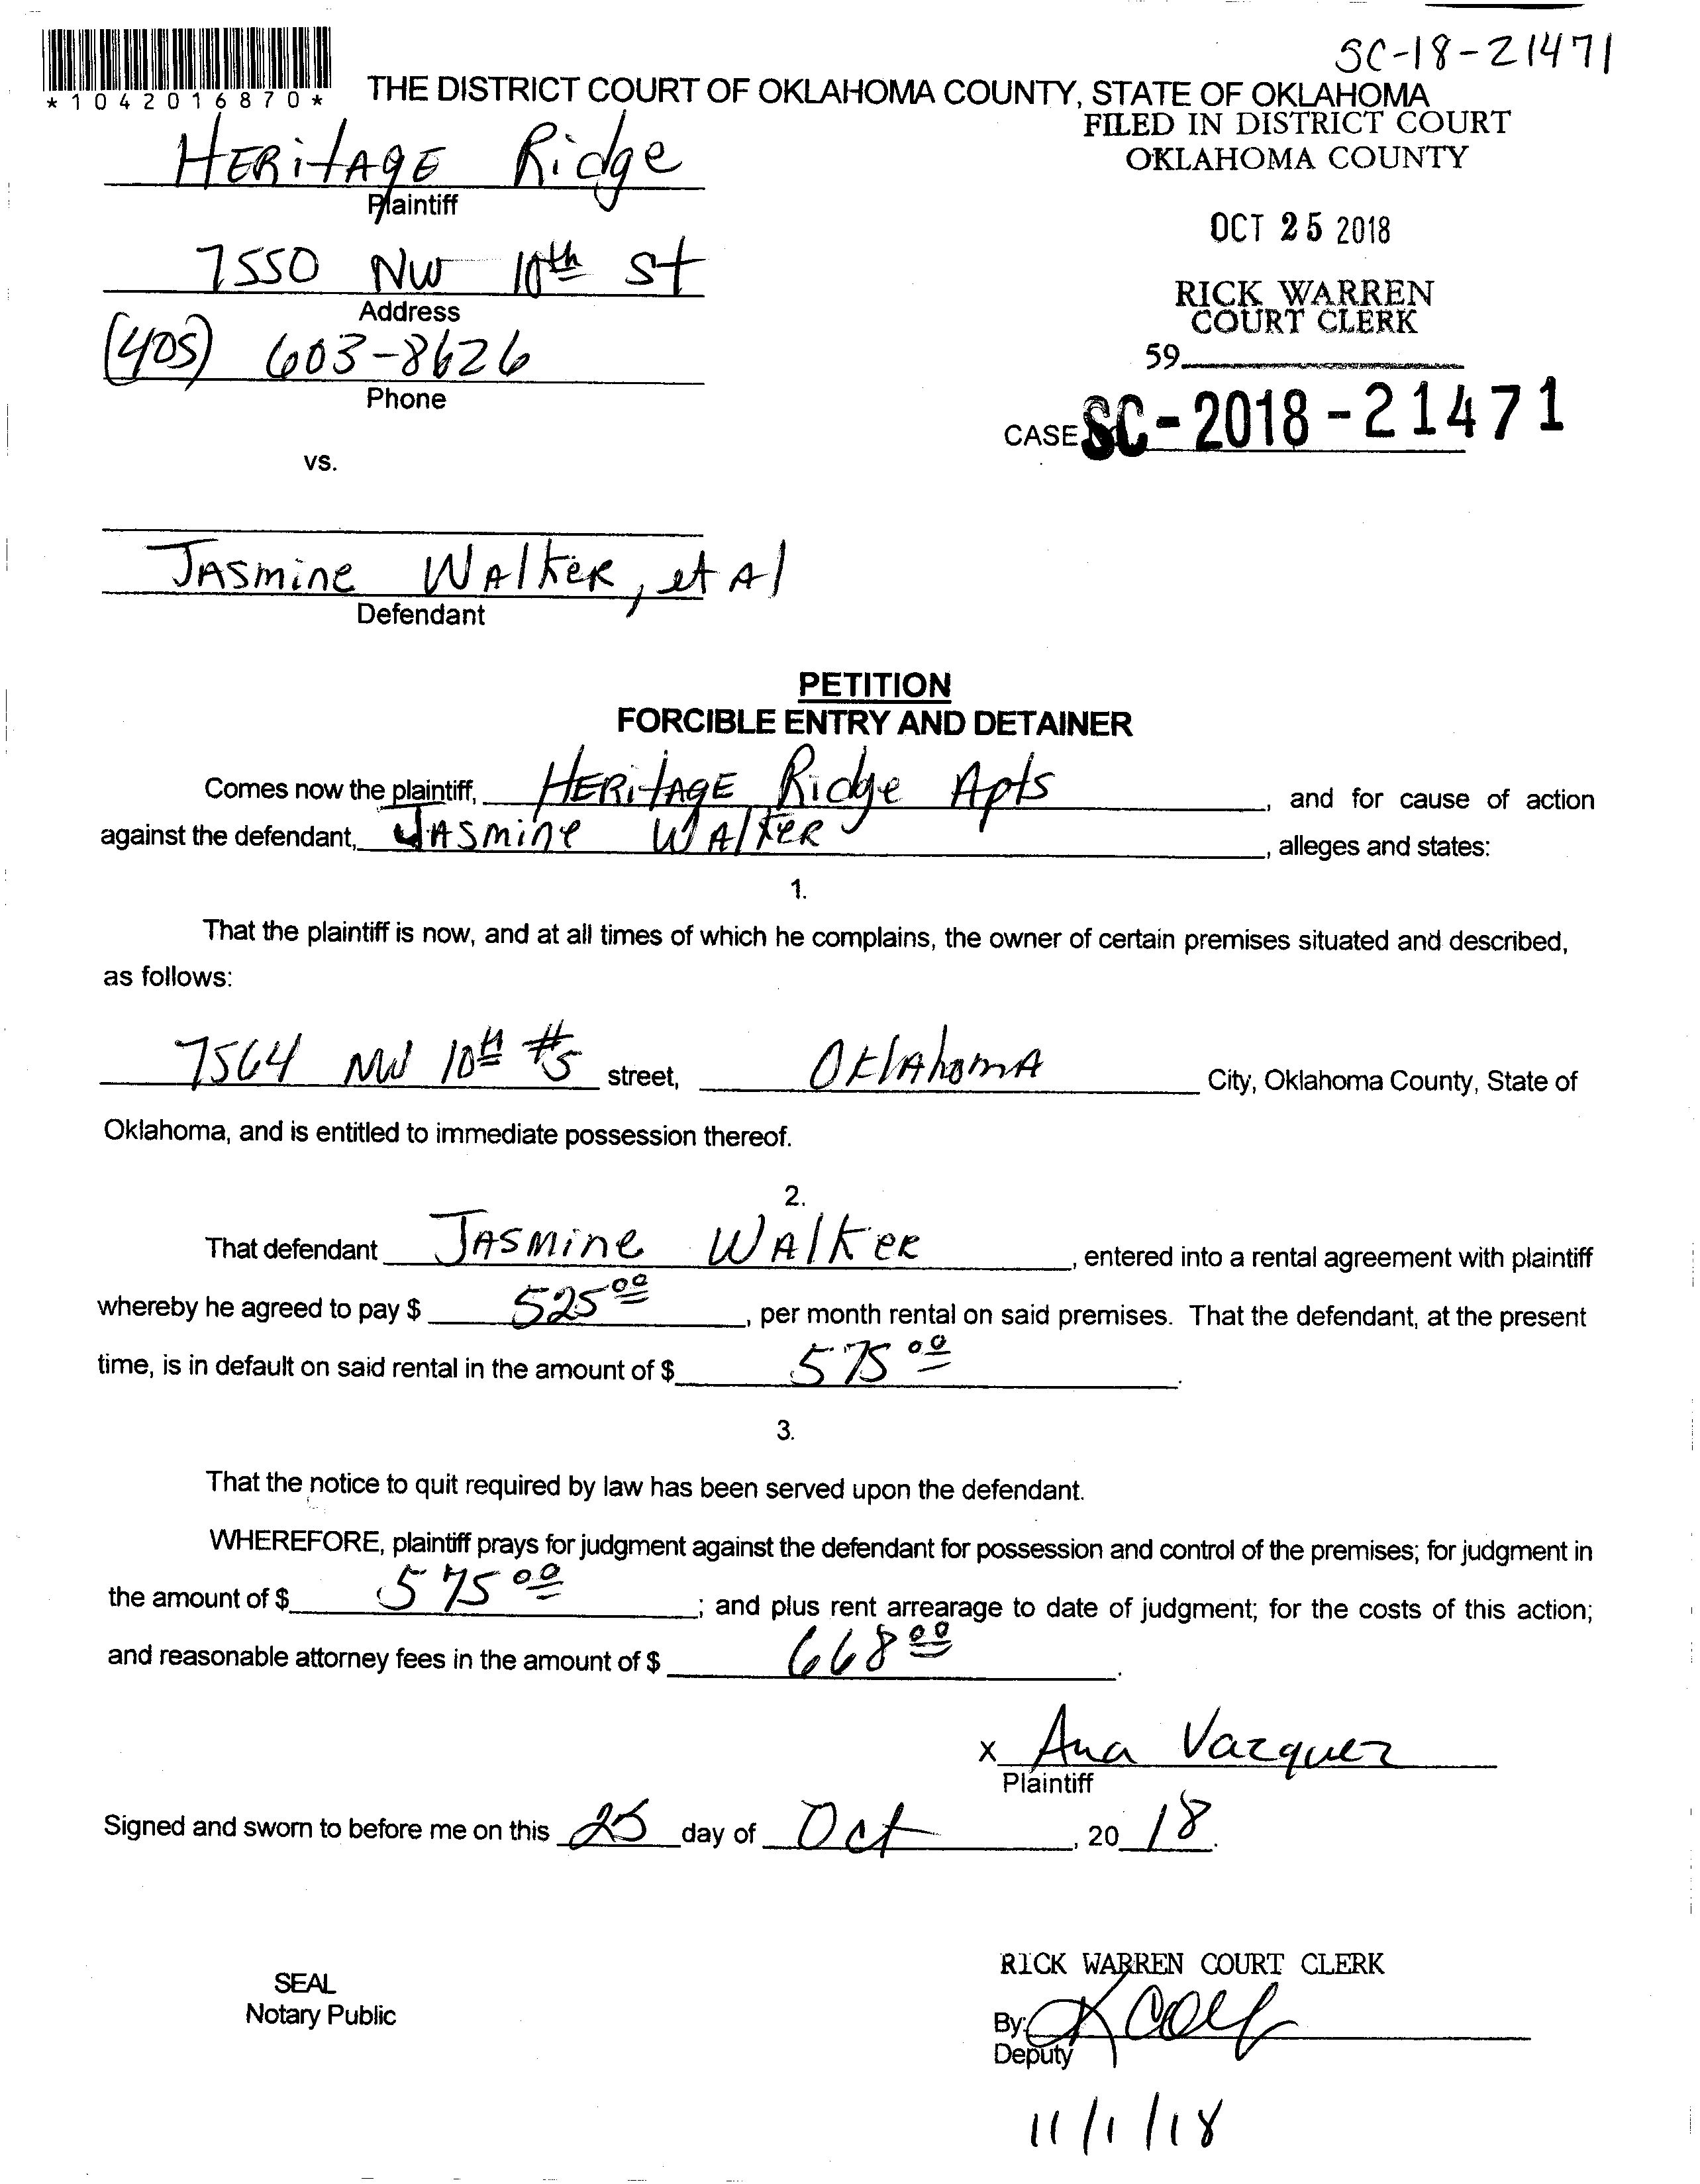 SC-18-21471
*1042016870*
THE DISTRICT COURT OF OKLAHOMA COUNTY, STATE OF OKLAHOMA
FILED IN DISTRICT COURT
OKLAHOMA COUNTY
HERitAGE Ridge
Plaintiff
OCT 25 2018
7550 NW 10th St
Address
RICK WARREN
COURT CLERK
(405) 603-8626
Phone
59
CASE SC-2018-21471
vs.
JASmine WAlkeR, et Al
Defendant
PETITION
FORCIBLE ENTRY AND DETAINER
Comes now the plaintiff, HERitAGE Ridge Apts, and for cause of action
against the defendant, JASmine WAlkeR, alleges and states:
1.
That the plaintiff is now, and at all times of which he complains, the owner of certain premises situated and described,
as follows:
7564 NW 10th #5 street, OklAhomA City, Oklahoma County, State of
Oklahoma, and is entitled to immediate possession thereof.
2.
That defendant JASmine WAlkeR, entered into a rental agreement with plaintiff
whereby he agreed to pay $ 525 00, per month rental on said premises. That the defendant, at the present
time, is in default on said rental in the amount of $ 575 00.
3.
That the notice to quit required by law has been served upon the defendant.
WHEREFORE, plaintiff prays for judgment against the defendant for possession and control of the premises; for judgment in
the amount of $ 575 00; and plus rent arrearage to date of judgment; for the costs of this action;
and reasonable attorney fees in the amount of $ 668 00.
x Ana Vazquez
Plaintiff
Signed and sworn to before me on this 25 day of Oct, 20 18.
RICK WARREN COURT CLERK
SEAL
Notary Public
By:
Deputy
11/1/18